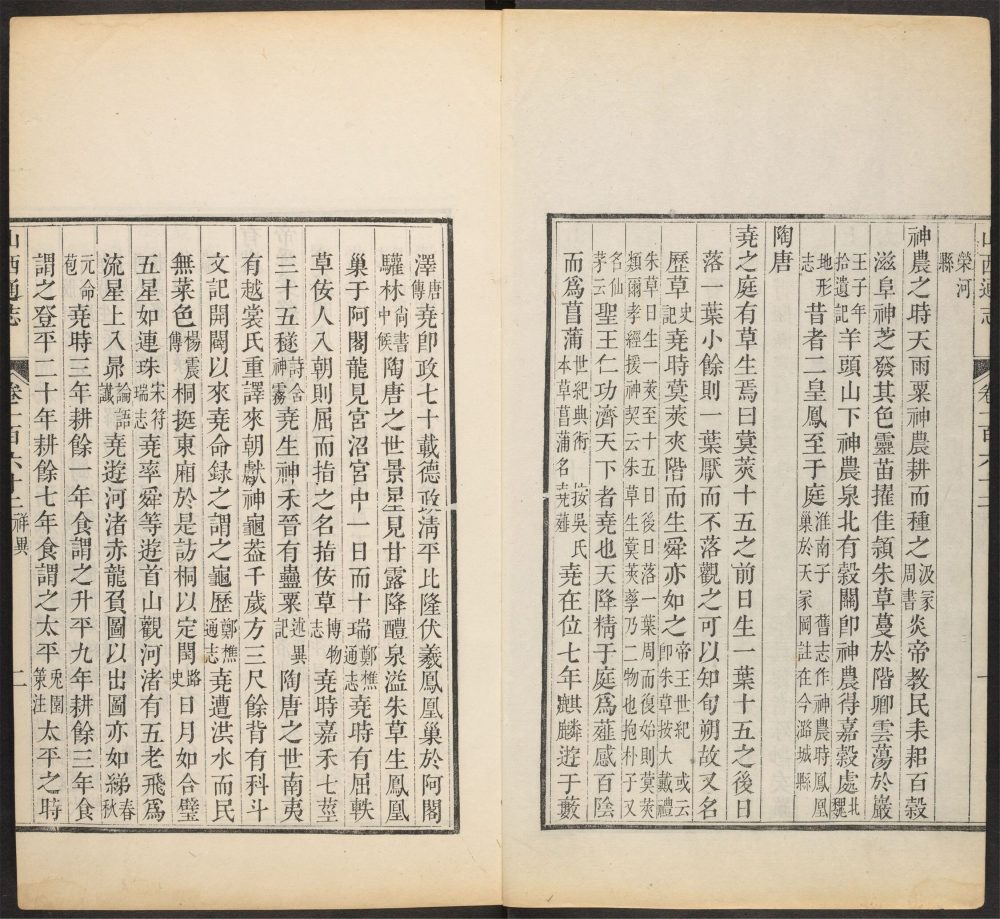 山西通志　卷一百六十二　一
榮河縣
神農之時天雨粟神農耕而種之汲冢周書炎帝教民耒耜百穀
滋阜神芝發其色靈苗擢佳頴朱草蔓於階卿雲蕩於巖
王子年拾遺記羊頭山下神農泉北有穀關卽神農得嘉穀處北魏
地形志昔者二皇鳳至于庭淮南子　舊志作神農時鳳凰巢於天冢岡註在今潞城縣
陶唐
堯之庭有草生焉曰蓂莢十五之前日生一葉十五之後日
落一葉小餘則一葉厭而不落觀之可以知旬朔故又名
歷草史記堯時蓂莢夾階而生舜亦如之帝王世紀　或云卽朱草按大戴禮
朱草日生一莢至十五日後日落一葉周而復始則蓂莢類爾孝經援神契云朱草生蓂莢孳乃二物也抱朴子又
名仙茅云聖王仁功濟天下者堯也天降精于庭爲薤感百陰
而爲菖蒲世紀典術　按吳氏本草菖蒲名堯薤堯在位七年麒麟遊于藪
澤唐傳堯卽政七十載德政清平比隆伏羲鳳凰巢於阿閣
驩林尚書中候陶唐之世景星見甘露降醴泉溢朱草生鳳凰
巢于阿閣龍見宮沼宮中一日而十瑞鄭樵通志堯時有屈軼
草佞人入朝則屈而指之名指佞草博物志堯時嘉禾七莖
三十五穟詩含神霧堯生神禾晉有蠱粟述異記陶唐之世南夷
有越裳氏重譯來朝獻神龜葢千歲方三尺餘背有科斗
文記開闢以來堯命録之謂之龜歷鄭樵通志堯遭洪水而民
無菜色楊震傳桐挺東廂於是訪桐以定閏路史日月如合璧
五星如連珠宋符瑞志堯率舜等遊首山觀河渚有五老飛爲
流星上入昴論語讖堯遊河渚赤龍負圖以出圖亦如綈春秋
元命苞堯時三年耕餘一年食謂之升平九年耕餘三年食
謂之登平二十年耕餘七年食謂之太平兎園策注太平之時
山西通志　卷一百六十二　祥異　二